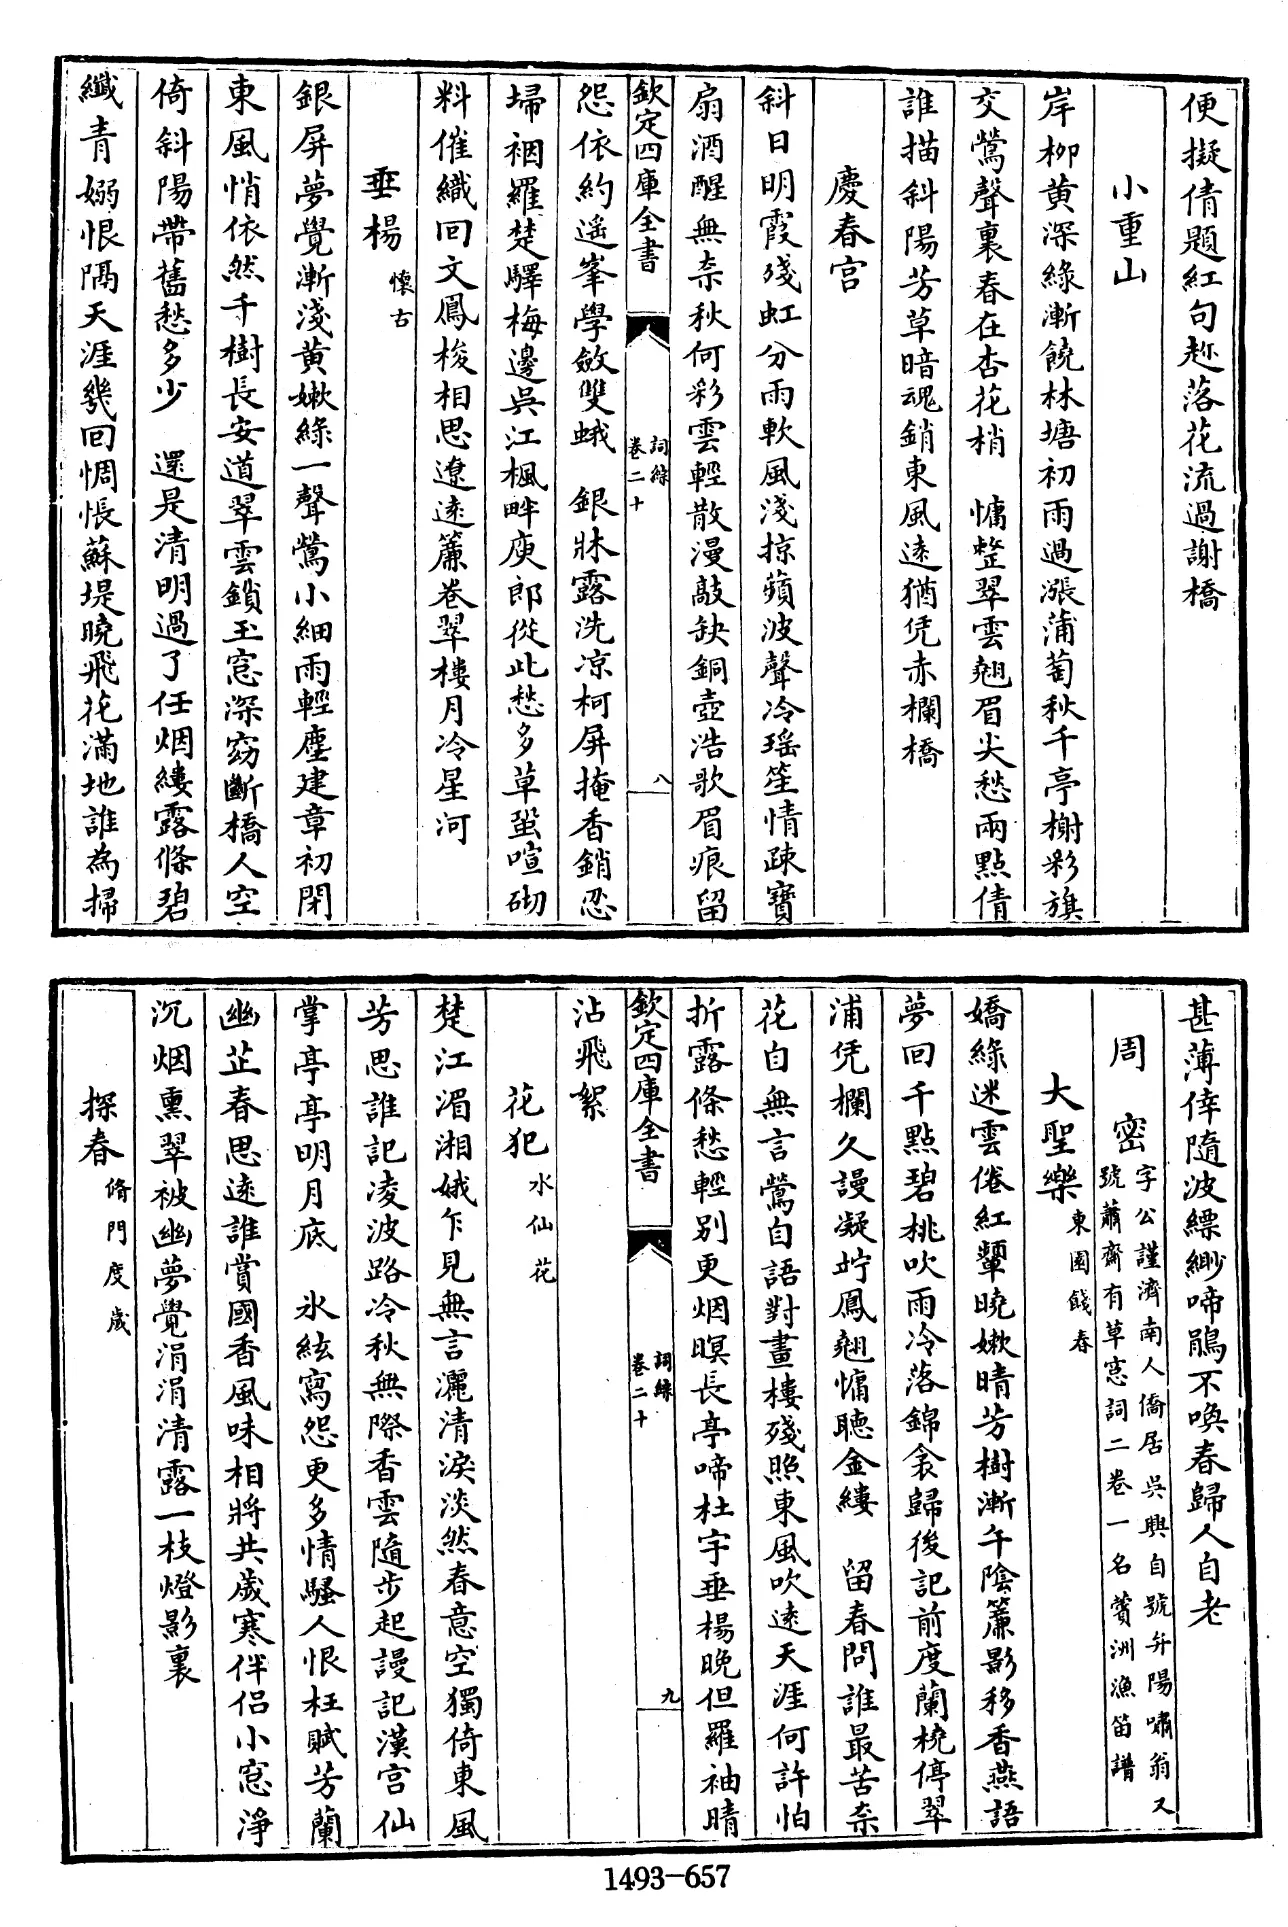 便擬倩題紅句趂落花流過謝橋
小重山
岸柳黄深綠漸饒林塘初雨過漲蒲萄秋千亭榭彩旗
交鶯聲裏春在杏花梢　慵整翠雲翹眉尖愁兩點倩
誰描斜陽芳草暗魂銷東風遠猶凭赤欄橋
慶春宫
斜日明霞殘虹分雨軟風淺掠蘋波聲冷瑤笙情疎寶
扇酒醒無柰秋何彩雲輕散漫敲缺銅壺浩歌眉痕留
怨依約遥峯學斂雙蛾　銀牀露洗凉柯屏掩香銷忍
埽裀羅楚驛梅邊吳江楓畔庾郎從此愁多草蛩喧砌
料催織回文鳳梭相思遼遠簾卷翠樓月冷星河
垂楊　懷古
銀屏夢覺漸淺黄嫩綠一聲鶯小細雨輕塵建章初閉
東風悄依然千樹長安道翠雲鎖玉窓深窈斷橋人空
倚斜陽帶舊愁多少　還是清明過了任烟縷露條碧
纖青嫋恨隔天涯幾回惆悵蘇堤曉飛花滿地誰為掃
欽定四庫全書
詞綜
卷二十
八
甚薄倖隨波縹緲啼鵑不喚春歸人自老
周　密　字公謹濟南人僑居吳興自號弁陽嘯翁又
號蕭齋有草窓詞二卷一名蘋洲漁笛譜
大聖樂　東園餞春
嬌綠迷雲倦紅顰曉嫩晴芳樹漸午陰簾影移香燕語
夢回千點碧桃吹雨冷落錦衾歸後記前度蘭橈停翠
浦凭欄久謾凝竚鳳翹慵聽金縷　留春問誰最苦柰
花自無言鶯自語對畫樓殘照東風吹遠天涯何許怕
折露條愁輕别更烟暝長亭啼杜宇垂楊晚但羅袖晴
沾飛絮
花犯　水仙花
楚江湄湘娥乍見無言灑清淚淡然春意空獨倚東風
芳思誰記凌波路冷秋無際香雲隨步起謾記漢宫仙
掌亭亭明月底　氷絃寫怨更多情騷人恨枉賦芳蘭
幽芷春思遠誰賞國香風味相將共歲寒伴侣小窓淨
沉烟熏翠被幽夢覺涓涓清露一枝燈影裏
探春　脩門度歲
欽定四庫全書
詞綜
卷二十
九
1493-657